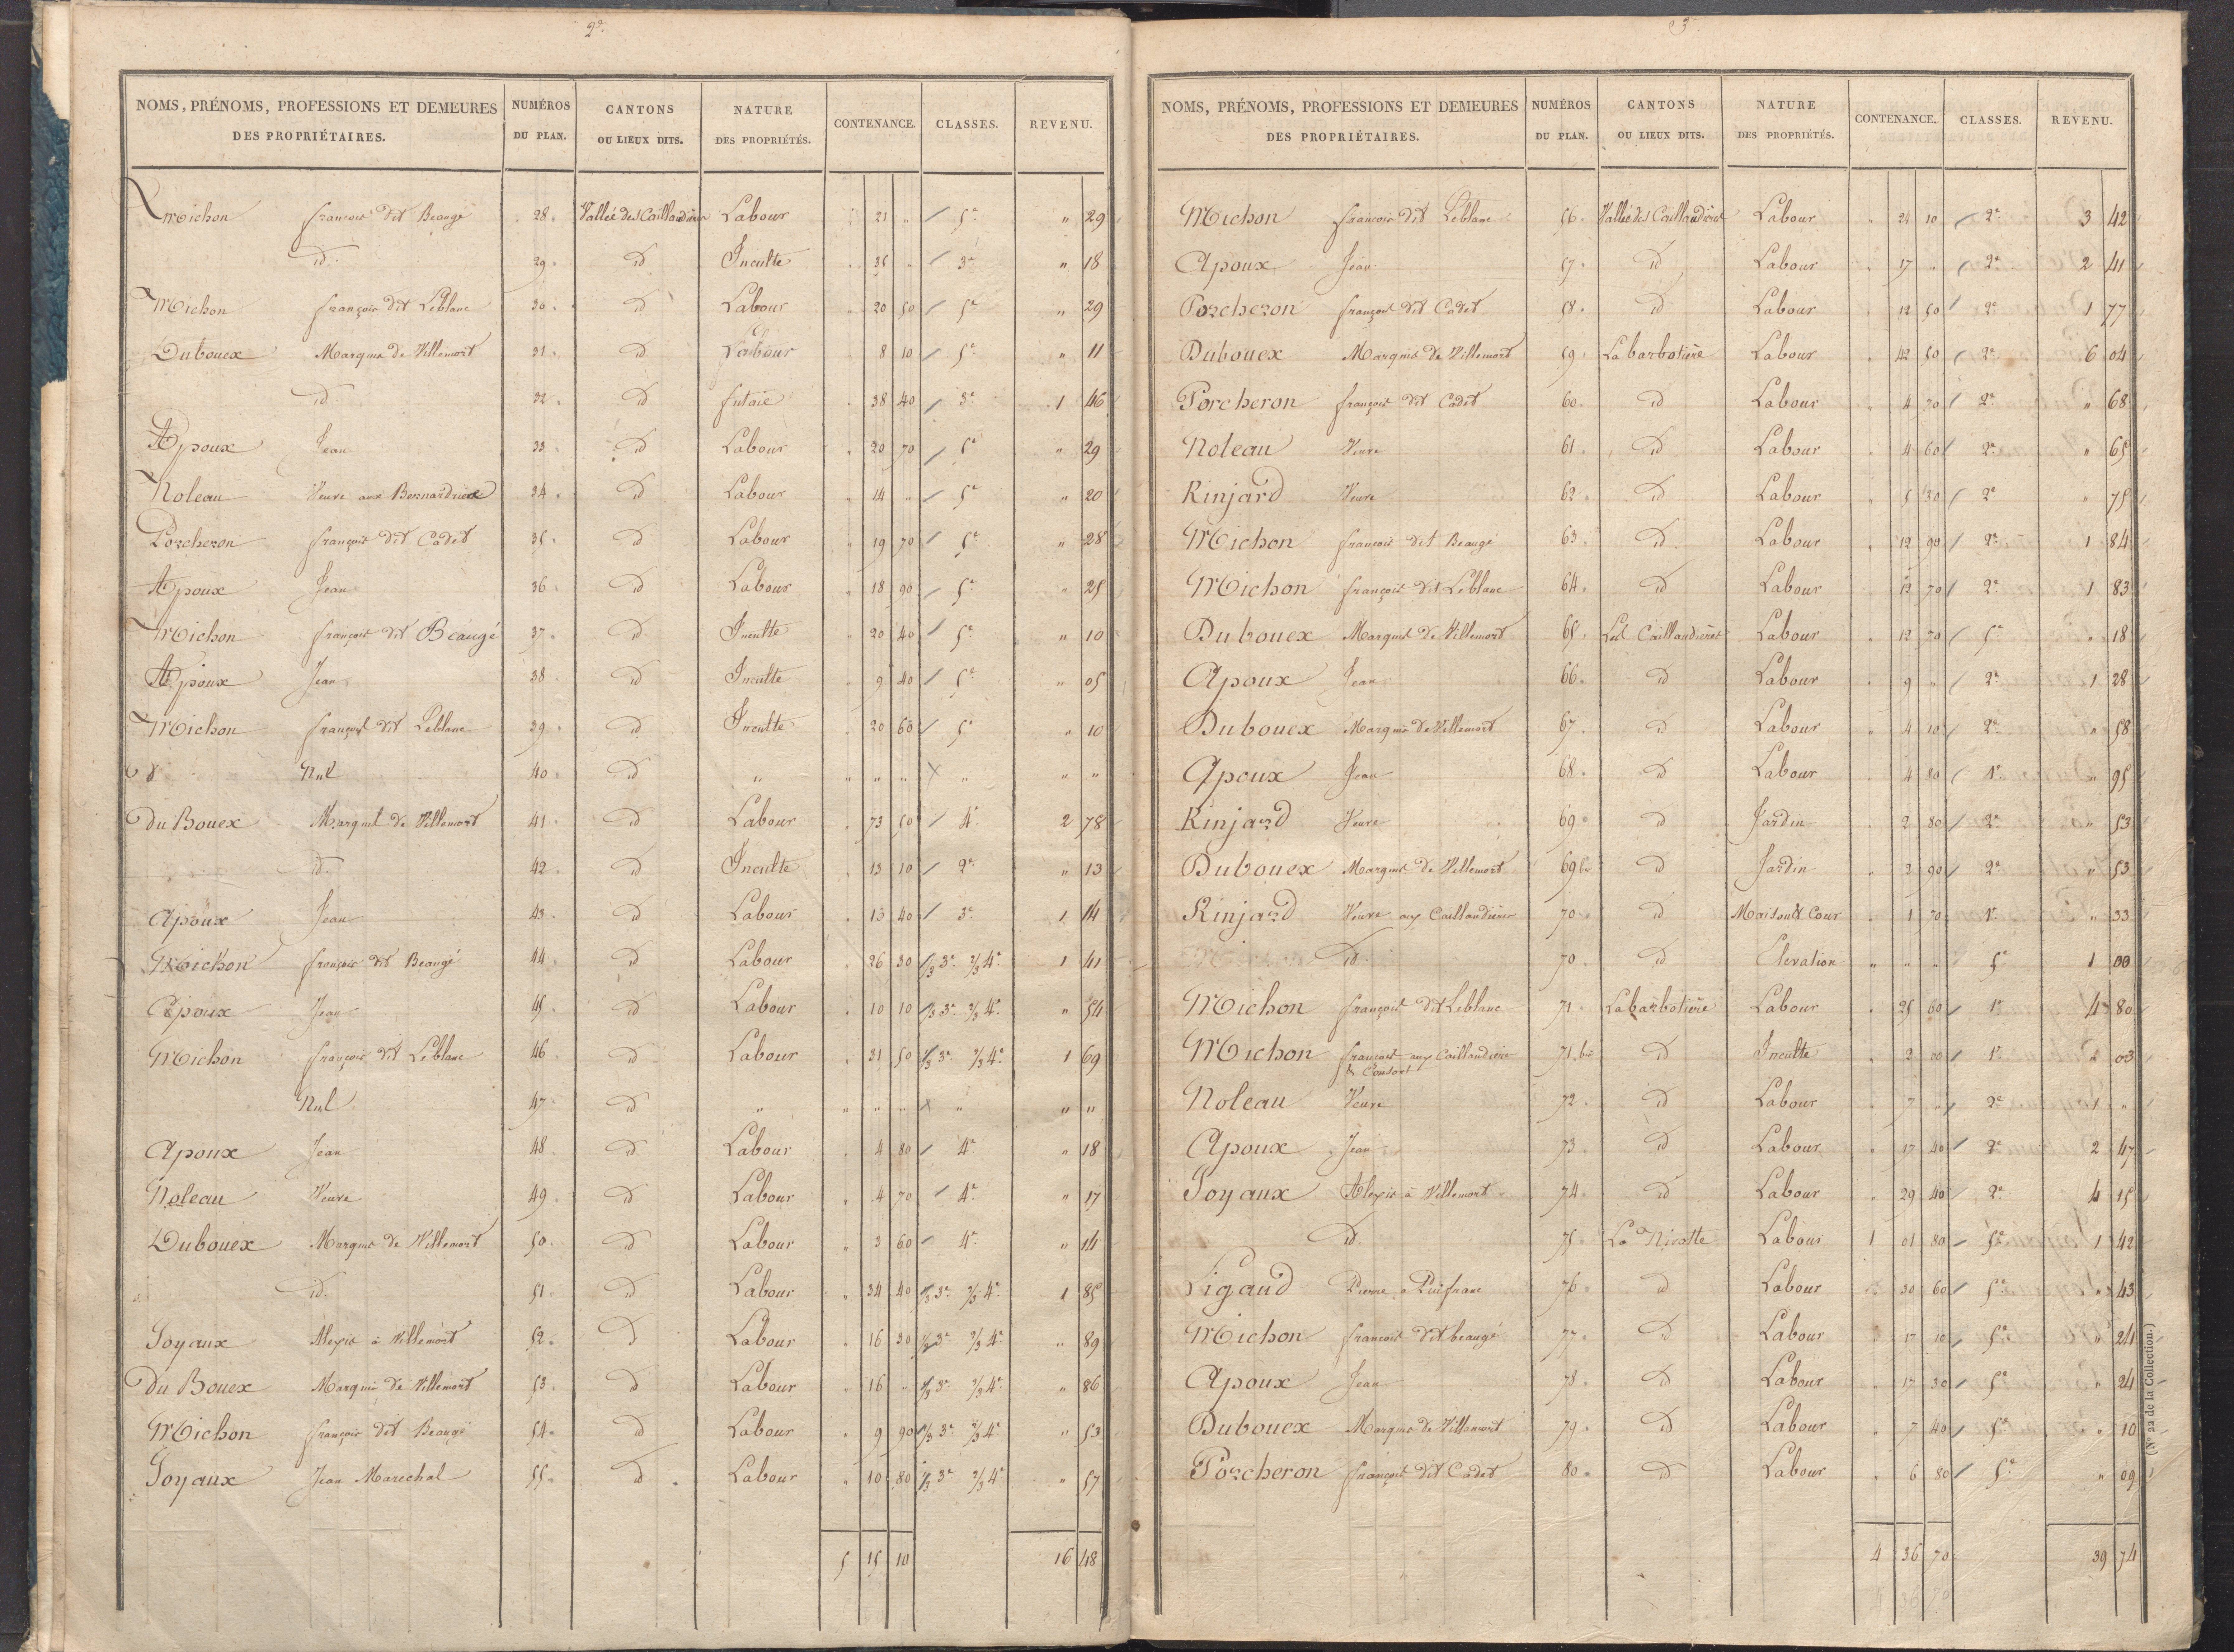 2e.
NOMS, PRÉNOMS, PROFESSIONS ET DEMEURES DES PROPRIÉTAIRES. | NUMÉROS DU PLAN. | CANTONS OU LIEUX DITS. | NATURE DES PROPRIÉTÉS. | CONTENANCE. | CLASSES. | REVENU.
Michon françois dit Beaugé 28. Vallée des Caillaudières Labour 21 " / 5e " 29
id. 29. id Inculte 35 " / 3e " 18
Michon françois dit Leblanc 30. id Labour 20 50 / 5e " 29
Dubouex Marquis de Villemort 31. id Labour 8 10 / 5e " 11
id. 32. id futaie 38 40 / 3e 1 46
Apoux Jean 33. id Labour 20 70 / 5e " 29
Noleau Veuve aux Bernardries 34. id Labour 14 " / 5e " 20
Porcheron françois dit Cadet 35. id Labour 19 70 / 5e " 28
Apoux Jean 36. id Labour 18 90 / 5e " 25
Michon françois dit Beaugé 37. id Inculte 20 40 / 5e " 10
Apoux Jean 38. id Inculte 9 40 / 5e " 05
Michon françois dit Leblanc 39. id Inculte 20 60 / 5e " 10
Nul 40. id " " " " X " " "
Du Bouex Marquis de Villemort 41. id Labour 73 50 / 4e 2 78
id. 42. id Inculte 13 10 / 2e " 13
Apoux Jean 43. id Labour 13 40 / 3e 1 14
Michon françois dit Beaugé 44. id Labour 26 30 1/3 3e 2/3 4e 1 41
Apoux Jean 45. id Labour 10 10 1/3 3e 2/3 4e " 54
Michon françois dit Leblanc 46. id Labour 31 50 1/3 3e 2/3 4e 1 69
Nul 47. id " " " " X " " "
Apoux Jean 48. id Labour 4 80 / 4e " 18
Noleau Veuve 49. id Labour 4 70 / 4e " 17
Dubouex Marquis de Villemort 50. id Labour " 3 60 / 4e " 14
id. 51. id Labour " 34 40 1/3 3e 2/3 4e 1 85
Joyaux Alexis à Villemort 52. id Labour " 16 30 1/3 3e 2/3 4e " 89
Du Bouex Marquis de Villemort 53. id Labour " 16 " 1/3 3e 2/3 4e " 86
Michon françois dit Beaugé 54. id Labour " 9 90 1/3 3e 2/3 4e " 53
Joyaux Jean Marechal 55. id. Labour " 10 80 1/3 3e 2/3 4e " 57
5 15 10 16 48
3
NOMS, PRÉNOMS, PROFESSIONS ET DEMEURES DES PROPRIÉTAIRES. | NUMÉROS DU PLAN. | CANTONS OU LIEUX DITS. | NATURE DES PROPRIÉTÉS. | CONTENANCE. | CLASSES. | REVENU.
Michon françois dit Leblanc 56. Vallée des Caillaudières Labour " 24 10 / 2e 3 42
Apoux Jean 57. id Labour " 17 " / 2e 2 41
Porcheron françois dit Cadet 58. id Labour " 12 50 / 2e 1 77
Dubouex Marquis de Villemort 59. La barbotiere Labour " 42 50 / 2e 6 04
Porcheron françois dit Cadet 60. id Labour " 4 70 / 2e " 68
Noleau Veuve 61. id Labour " 4 60 / 2e " 65
Rinjard Veuve 62. id Labour " 5 30 / 2e " 75
Michon françois dit Beaugé 63. id Labour " 12 90 / 2e 1 84
Michon françois dit Leblanc 64. id Labour " 12 70 / 2e 1 83
Dubouex Marquis de Villemort 65. Les Caillaudières Labour " 12 70 / 5e " 18
Apoux Jean 66. id Labour " 9 " / 2e 1 28
Dubouex Marquis de Villemort 67. id Labour " 4 10 / 2e " 58
Apoux Jean 68. id Labour " 4 80 / 1e " 95
Rinjard Veuve 69. id Jardin " 2 80 / 2e " 53
Dubouex Marquis de Villemort 69 bis id Jardin " 2 90 / 2e " 53
Rinjard Veuve aux Caillaudières 70. id Maison & Cour " 1 70 1e " 33
id. 70. id Elevation " " " 5e 1 00
Michon françois dit Leblanc 71. Labarbotiere Labour " 25 60 / 1e 4 80
Michon françois aux Caillaudieres & Consort 71. bis id Inculte " 2 00 / 1e " 03
Noleau Veuve 72. id Labour " 7 " / 2e 1 "
Apoux Jean 73. id Labour " 17 40 / 2e 2 47
Joyaux Alexis à Villemort 74. id Labour " 29 40 / 2e 4 15
id. 75. La Nicotte Labour 1 01 80 / 5e 1 42
Pigaud Pierre à Puifranc 76. id Labour 30 60 / 5e " 43
Michon françois dit beaugé 77. id Labour " 17 10 / 5e " 24
Apoux Jean 78. id Labour " 17 30 / 5e " 24
Dubouex Marquis de Villemort 79. id Labour " 7 40 / 5e " 10
Porcheron françois dit Cadet 80. id Labour " 6 80 / 5e " 09
4 36 70 39 74
(N° 22 de la Collection.)